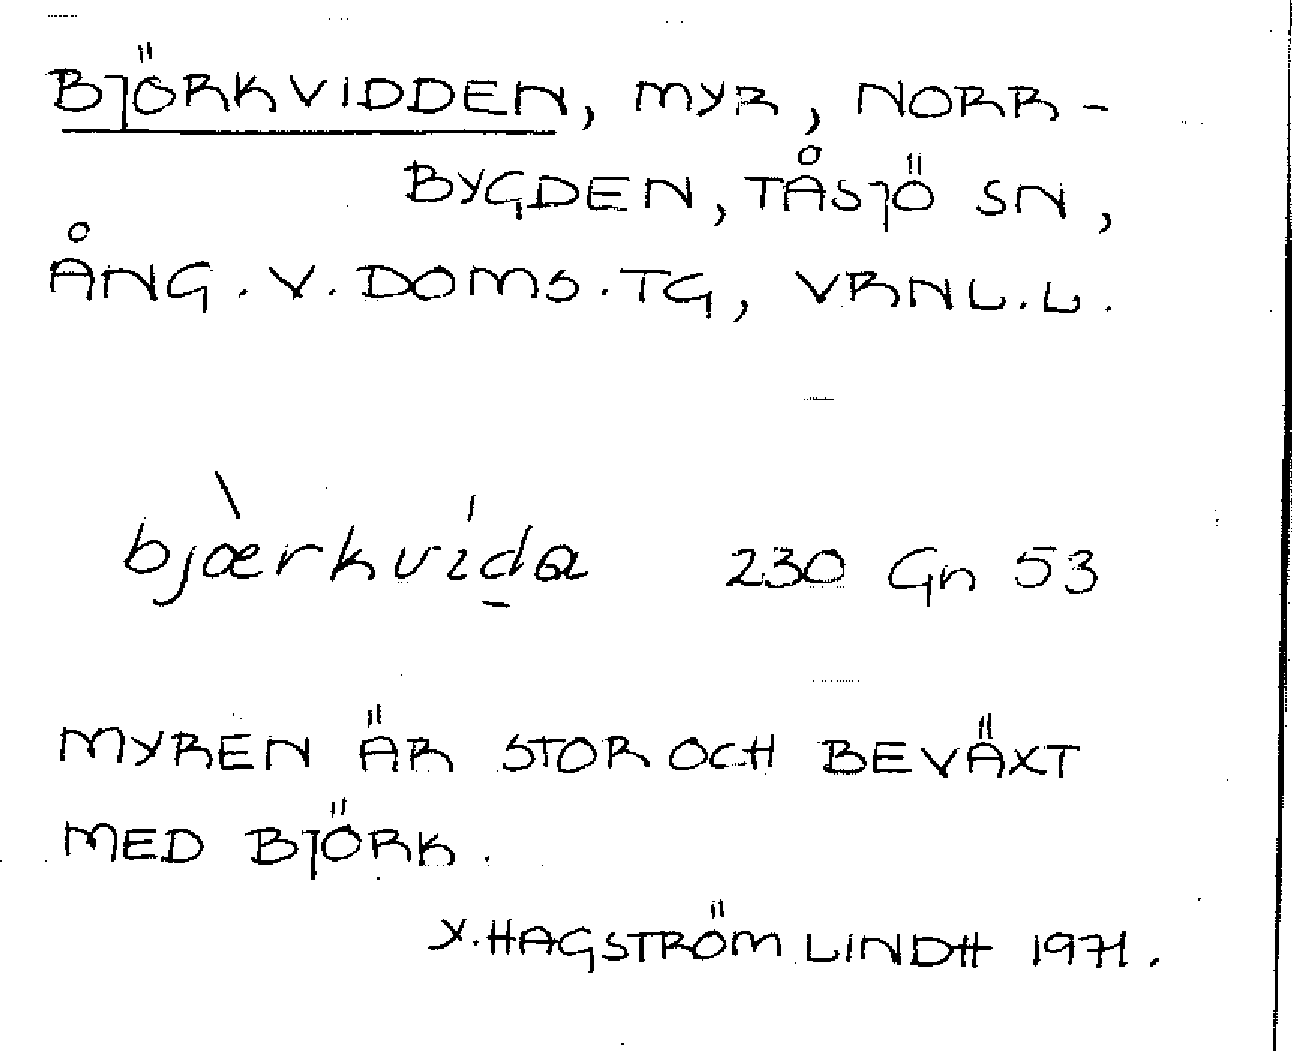 BJÖRKVIDDEN, MYR, NORR-
BYGDEN, TÅSJÖ SN,
ÅNG. V. DOMS. TG, VRNL. L.
bjæ̀rkvíḏa 230 Gn 53
MYREN ÄR STOR OCH BEVÄXT
MED BJÖRK.
Y. HAGSTRÖM LINDH 1971.